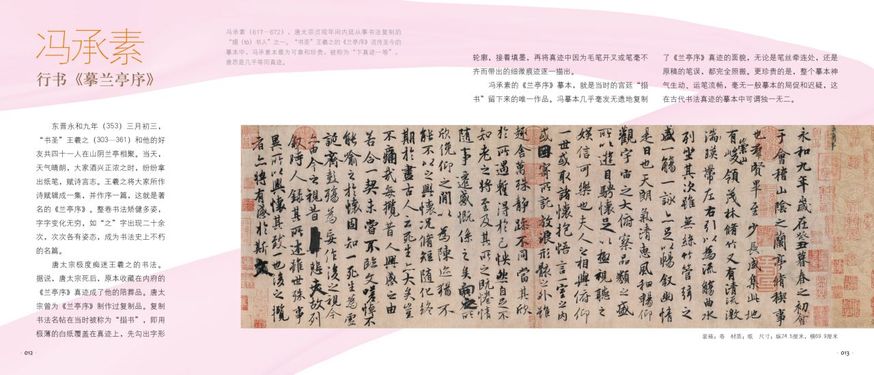 冯承素
行书《摹兰亭序》
冯承素（617－672），唐太宗贞观年间内廷从事书法复制的
“搨（tà）书人”之一。“书圣”王羲之的《兰亭序》流传至今的
摹本中，冯承素本最为可靠和珍贵，被称为“下真迹一等”，
意思是几乎等同真迹。
东晋永和九年（353）三月初三，
“书圣”王羲之（303－361）和他的好
友共四十一人在山阴兰亭相聚。当天，
天气晴朗，大家酒兴正浓之时，纷纷拿
出纸笔，赋诗言志。王羲之将大家所作
诗赋辑成一集，并作序一篇，这就是著
名的《兰亭序》。整卷书法矫健多姿，
字字变化无穷，如“之”字出现二十余
次，次次各有姿态，成为书法史上不朽
的名篇。
唐太宗极度痴迷王羲之的书法。
据说，唐太宗死后，原本收藏在内府的
《兰亭序》真迹成了他的陪葬品。唐太
宗曾为《兰亭序》制作过复制品。复制
书法名帖在当时被称为“搨书”，即用
极薄的白纸覆盖在真迹上，先勾出字形
轮廓，接着填墨，再将真迹中因为毛笔开叉或笔毫不
齐而带出的细微痕迹逐一描出。
冯承素的《兰亭序》摹本，就是当时的宫廷“搨
书”留下来的唯一作品。冯摹本几乎毫发无遗地复制
了《兰亭序》真迹的面貌，无论是笔丝牵连处，还是
原稿的笔误，都完全照搬。更珍贵的是，整个摹本神
气生动、运笔流畅，毫无一般摹本的局促和迟疑，这
在古代书法真迹的摹本中可谓独一无二。
永和九年歲在癸丑暮春之初會
于會稽山陰之蘭亭脩禊事
也群賢畢至少長咸集此地
有崇山峻領茂林脩竹又有清流激
湍暎帶左右引以為流觴曲水
列坐其次雖無絲竹管弦之
盛一觴一詠亦足以暢敘幽情
是日也天朗氣清惠風和暢仰
觀宇宙之大俯察品類之盛
所以遊目騁懷足以極視聽之
娛信可樂也夫人之相與俯仰
一世或取諸懷抱悟言一室之內
或因寄所託放浪形骸之外雖
趣舍萬殊靜躁不同當其欣
於所遇暫得於己怏然自足不
知老之將至及其所之既惓情
隨事遷感慨係之矣向之所
欣俛仰之間以為陳迹猶不
能不以之興懷況脩短隨化終
期於盡古人云死生亦大矣豈
不痛哉每攬昔人興感之由
若合一契未嘗不臨文嗟悼不
能喻之於懷固知一死生為虛
誕齊彭殤為妄作後之視今
亦由今之視昔悲夫故列
敘時人錄其所述雖世殊事
異所以興懷其致一也後之攬
者亦將有感於斯文
装裱：卷 材质：纸 尺寸：纵24.5厘米，横69.9厘米
012
013